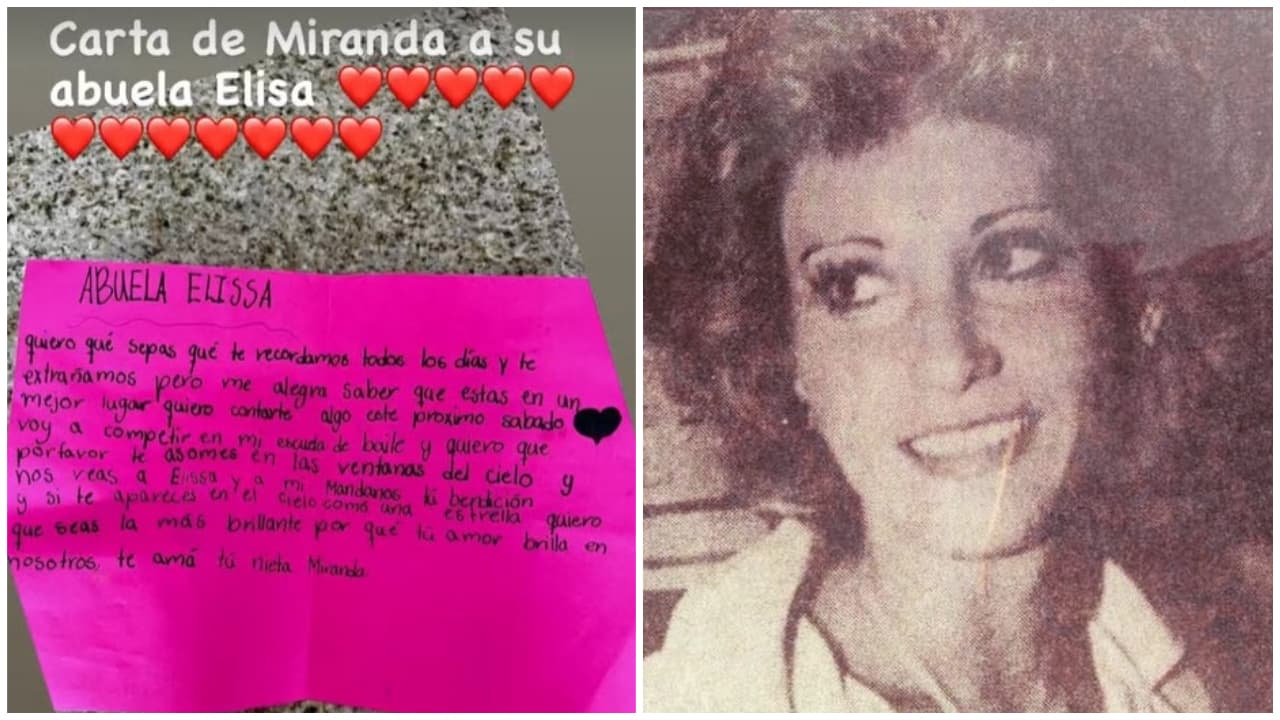 Carta de Miranda a su
abuela Elisa ❤️❤️❤️❤️❤️
❤️❤️❤️❤️❤️❤️❤️
ABUELA ELISSA
quiero qué sepas qué te recordamos todos los días y te
extrañamos pero me alegra saber que estas en un
mejor lugar quiero contarte algo este proximo sabado
voy a competir en mi escuela de baile y quiero que
porfavor te asomes en las ventanas del cielo y
nos veas a Elissa y a mi Mandanos tú bendición
y si te apareces en el cielo como una estrella quiero
que seas la más brillante por qué tú amor brilla en
nosotros, te amá tú nieta Miranda